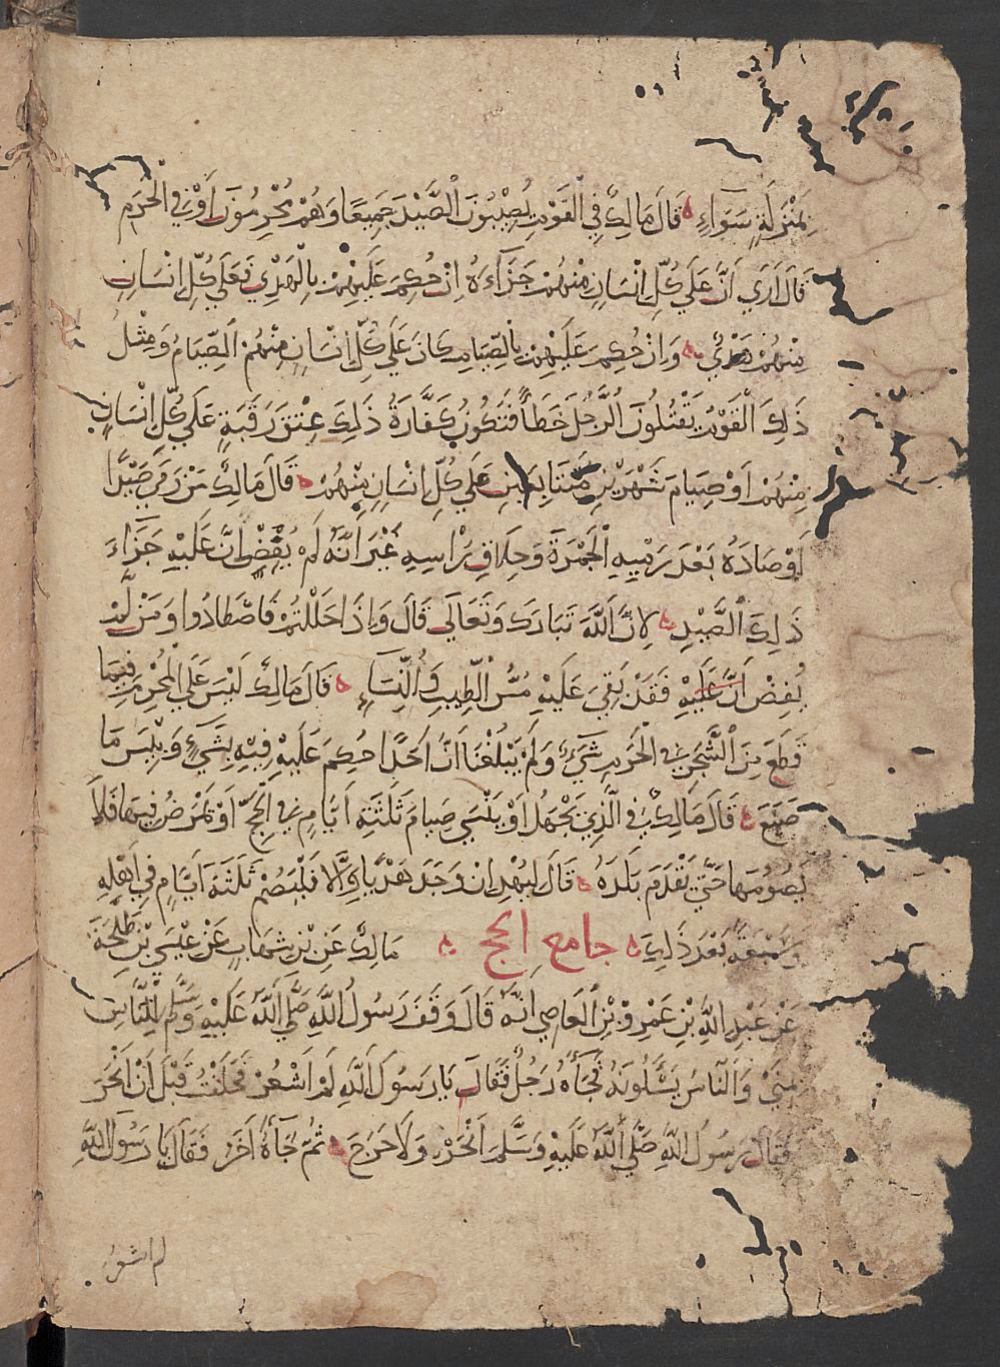 بِمَنْزِلَةٍ سَوَاءٍ ۞ قَالَ مَالِكٌ فِي الْقَوْمِ يُصِيْبُونَ الصَّيْدَ جَمِيعًا وَهُمْ مُحْرِمُونَ أَوْ فِي الْحَرَمِ
قَالَ اَرَي اَنَّ عَلَي كُلِّ اِنْسَانٍ مِنْهُمْ جَزَآءَهُ اِنْ حُكِمَ عَلَيْهِمْ بِالْهَدْيِ فَعَلَي كُلِّ اِنْسَانٍ
مِنْهُمْ هَدْيٌ ۞ وَاِنْ حُكِمَ عَلَيْهِمْ بِالصِّيَامِ كَانَ عَلَي كُلِّ اِنْسَانٍ مِنْهُمْ الصِّيَامُ وَمِثْلُ
ذَلِكَ الْقَوْمُ يَقْتُلُونَ الرَّجُلَ خَطَأً فَتَكُونُ كَفَّارَةُ ذَلِكَ عِتْقَ رَقَبَةٍ عَلَي كُلِّ اِنْسَانٍ
مِنْهُمْ اَوْ صِيَامَ شَهْرَيْنِ مُتَتَابِعَيْنِ عَلَي كُلِّ اِنْسَانٍ مِنْهُمْ ۞ قَالَ مَالِكٌ مَنْ رَمَي صَيْدًا
اَوْ صَادَهُ بَعْدَ رَمْيِهِ الْجَمْرَةَ وَحِلَاقِ رَاْسِهِ غَيْرَ اَنَّهُ لَمْ يُفِضْ اِنَّ عَلَيْهِ جَزَآءَ
ذَلِكَ الصَّيْدِ ۞ لِاَنَّ اللَّهَ تَبَارَكَ وَتَعَالَي قَالَ وَاِذَا حَلَلْتُمْ فَاصْطَادُوا وَمَنْ لَمْ
يُفِضْ اَنَّ عَلَيْهِ فَقَدْ بَقِيَ عَلَيْهِ مَسُّ الطِّيبِ وَالنِّسَآءِ ۞ قَالَ مَالِكٌ لَيْسَ عَلَي الْمُحْرِمِ فِيمَا
قَطَعَ مِنَ الشَّجَرِ فِي الْحَرَمِ شَيْءٌ وَلَمْ يَبْلُغْنَا اَنَّ اَحَدًا حُكِمَ عَلَيْهِ فِيْهِ بِشَيْءٍ وَبِئْسَ مَا
صَنَعَ ۞ قَالَ مَالِكٌ فِي الَّذِي يَجْهَلُ اَوْ يَنْسَي صِيَامَ ثَلَثَةِ اَيَّامٍ فِي الْحَجِّ اَوْ يَمْرَضُ فِيهَا فَلَا
يَصُومُهَا حَتَّي يَقْدَمَ بَلَدَهُ ۞ قَالَ لِيُهْدِ اِنْ وَجَدَ هَدْيًا وَاِلَّا فَلْيَصُمْ ثَلَثَةَ اَيَّامٍ فِي اَهْلِهِ
وَسَبْعَةً بَعْدَ ذَلِكَ ۞ جامع الحج ۞ مَالِكٌ عَنِ بْنِ شِهَابٍ عَنْ عِيْسَي بْنِ طَلْحَةَ
عَنْ عَبْدِ اللَّهِ بْنِ عَمْرِو بْنِ الْعَاصِي اَنَّهُ قَالَ وَقَفَ رَسُولُ اللَّهِ صَلَّي اللَّهُ عَلَيْهِ وَسَلَّمَ لِلنَّاسِ
بِمِنَيً وَالنَّاسُ يَسْئَلُونَهُ فَجَآءَهُ رَجُلٌ فَقَالَ يَا رَسُولَ اللَّهِ لَمْ اَشْعُرْ فَحَلَقْتُ قَبْلَ اَنْ اَنْحَرَ
فَقَالَ رَسُولُ اللَّهِ صَلَّي اللَّهُ عَلَيْهِ وَسَلَّمَ اَنْحَرْ وَلَا حَرَجَ ۞ ثُمَّ جَآءَهُ اَخَرُ فَقَالَ يَا رَسُولَ اللَّهِ
لم اشعر